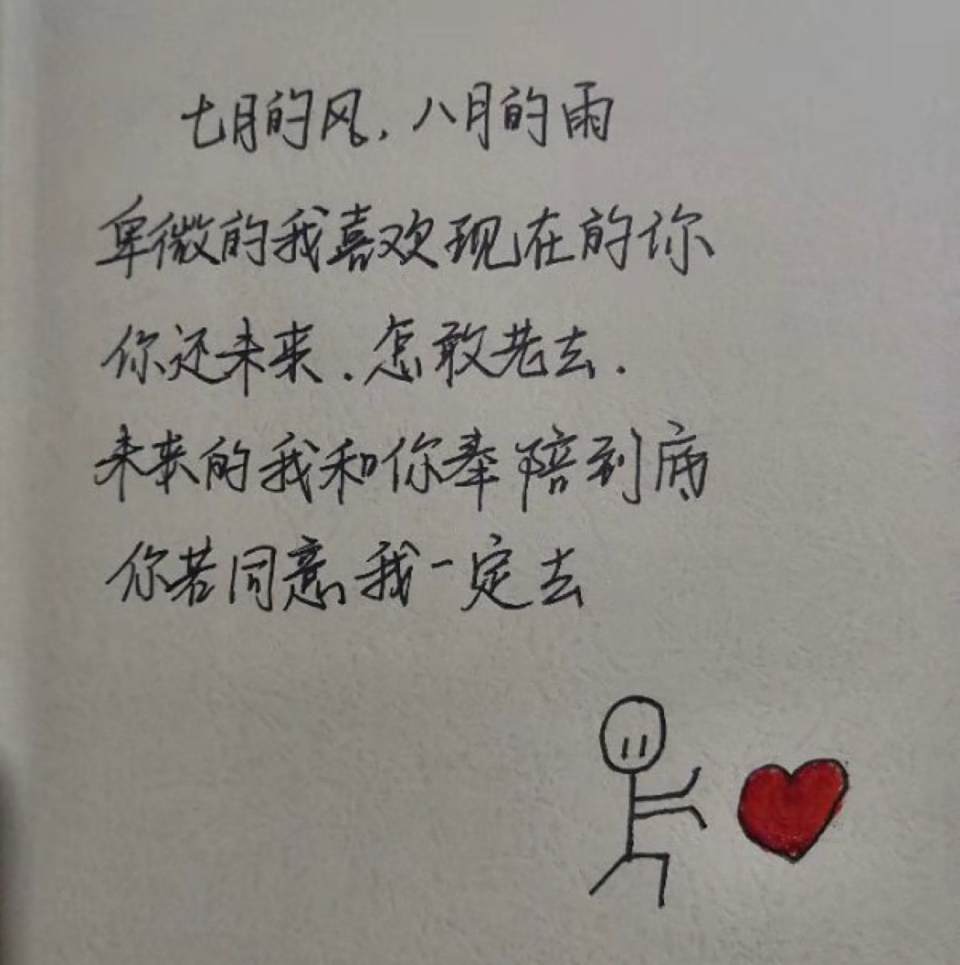 七月的风,八月的雨
卑微的我喜欢现在的你
你还未来.怎敢老去.
未来的我和你奉陪到底
你若同意,我一定去